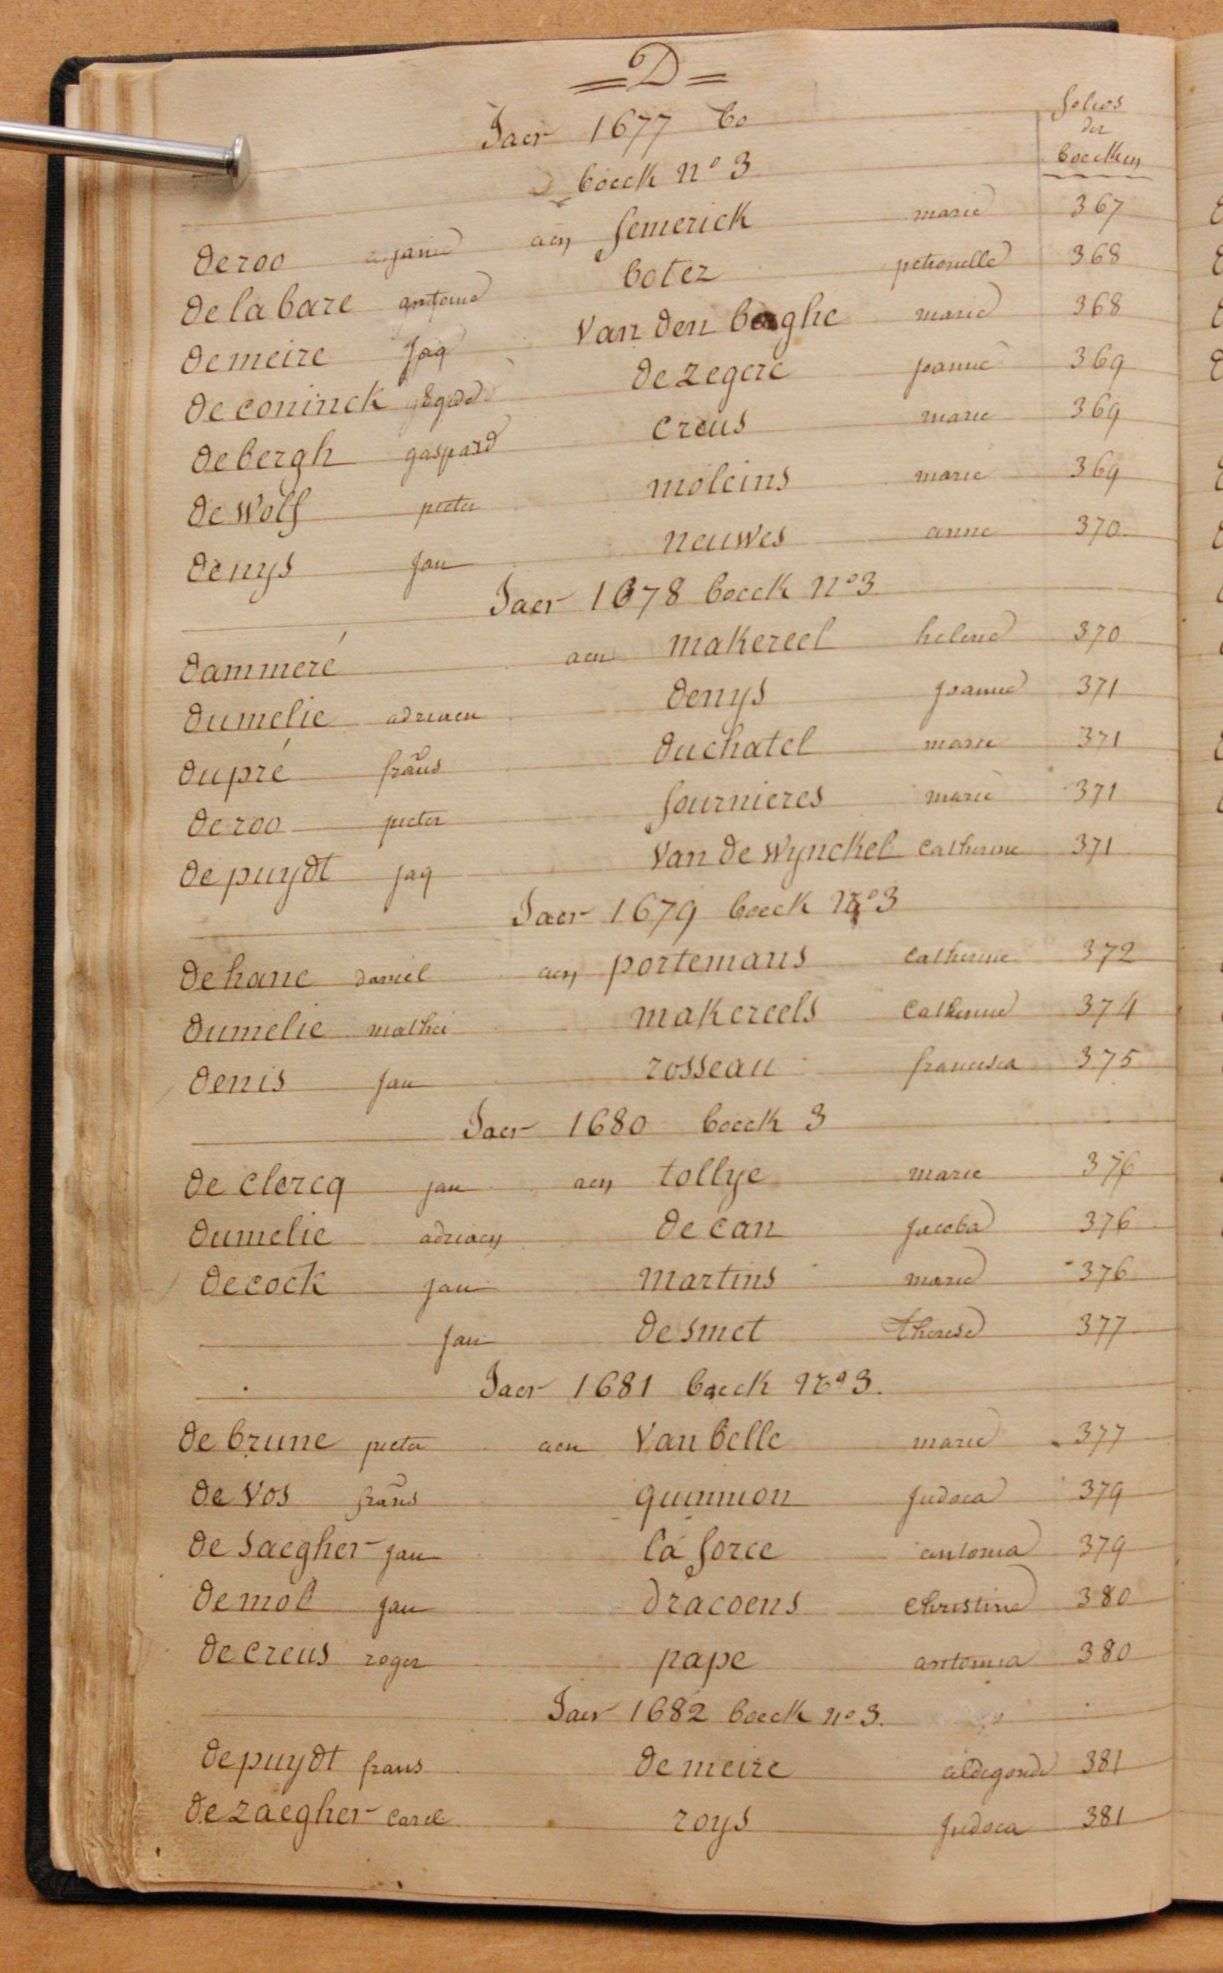 = D =
Jaer 1677 bo
folios
der
boecken
boeck n° 3
de roo janne aen semerick marie 367
de la bare antoine botez petronelle 368
de meire jaq van den berghe marie 368
de coninck Egide de zegere jeanne 369
de bergh gaspard creus marie 369
de wolf pieter moleins marie 369
denys jan neuwes anne 370
Jaer 1678 boeck n° 3
dammeré aen makereel helene 370
dumelie adriaen denys jeanne 371
dupré frans duchatel marie 371
de roo pieter fournieres marie 371
de puydt jaq van de wynckel catherine 371
Jaer 1679 boeck n° 3
de hane daniel aen portemans catherine 372
dumelie mathei makereels catherine 374
denis jan rosseau francisca 375
Jaer 1680 boeck 3
de clercq jan aen tollye marie 376
dumelie adriaen de can jacoba 376
de cock jan martins marie 376
jan de smet therese 377
Jaer 1681 boeck n° 3.
de brune pieter aen van belle marie 377
de vos frans quinnion judoca 379
de saegher jan la force antonia 379
de mol jan dracoens christine 380
de creus roger pape antonia 380
Jaer 1682 boeck n° 3.
de puydt frans de meire aldegonde 381
de zaegher carel roys judoca 381